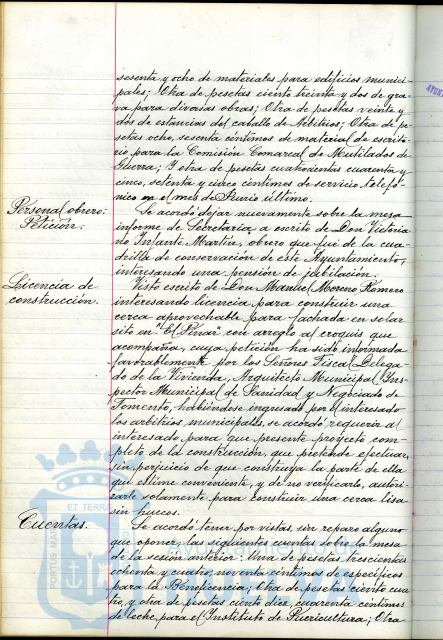 sesenta y ocho de materiales para edificios munici-
pales; Otra de pesetas ciento treinta y dos de gra-
va para diversas obras; Otra de pesetas veinte y
dos de estancias del caballo de Arbitrios; Otra de pe-
setas ocho, sesenta céntimos de material de escrito-
rio para la Comisión Comarcal de Mutilados de
Guerra; Y otra de pesetas cuatrocientas cuarenta y
cinco, setenta y cinco céntimos de servicio telefó-
nico en el mes de Junio último.
Personal obrero:
Petición.
Se acordó dejar nuevamente sobre la mesa
informe de Secretaría, a escrito de Don Victoria-
no Infante Martín, obrero que fué de la cua-
drilla de conservación de este Ayuntamiento,
interesando una pensión de jubilación.
Licencia de
construcción.
Visto escrito de Don Manuel Moreno Romero
interesando licencia para construir una
cerca aprovechable para fachada en solar
sito en "El Pinar" con arreglo al croquis que
acompaña, cuya petición ha sido informada
favorablemente por los Señores Fiscal Delega-
do de la Vivienda, Arquitecto Municipal, Ins-
pector Municipal de Sanidad y Negociado de
Fomento, habiéndose ingresado por el interesado
los arbitrios municipales, se acordó requerir al
interesado para que presente proyecto com-
pleto de la construcción que pretende efectuar,
sin perjuicio de que construya la parte de ella
que estime conveniente, y de no verificarlo, autori-
zarle solamente para construir una cerca lisa
sin huecos.
Cuentas.
Se acordó tener por vistas, sin reparo alguno
que oponer, las siguientes cuentas sobre la mesa
de la sesión anterior: Una de pesetas trescientas
ochenta y cuatro, noventa céntimos de específicos
para la Beneficencia; Otra de pesetas ciento cua-
tro, y otra de pesetas ciento diez, cuarenta céntimos
de leche para el Instituto de Puericultura; Otra